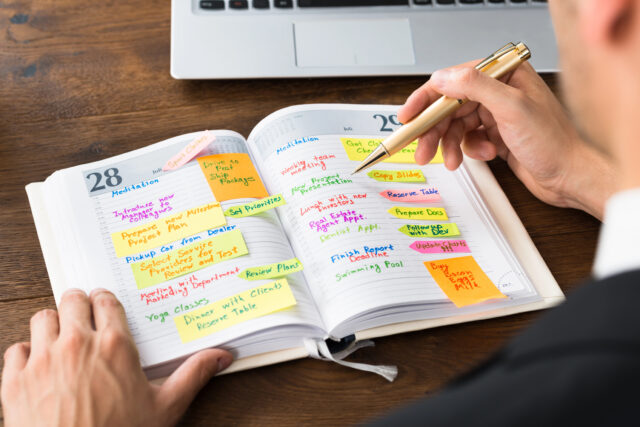 28
Juli
Meditation
Introduce new
Manager to
colleagues
Prepare new Monitor
Project Plan
Pickup Car from Dealer
Select Service
Providers for
Review and Test
Meeting with
Marketing Department
Yoga Classes
Dinner with Clients
Reserve Table
Drive to Post
Ship
Packages
Set Priorities
Review Plans
Juli
29
Meditation
Weekly team
meeting
New Project
Presentation
Lunch with new
Investors
Real Estate
Agent Appt.
Dentist Appt.
Finish Report
Deadline
Swimming Pool
Copy Slides
Reserve Table
Prepare Docs
Followup
with Dev
Update Charts
Buy Bacon
Eggs
Milk